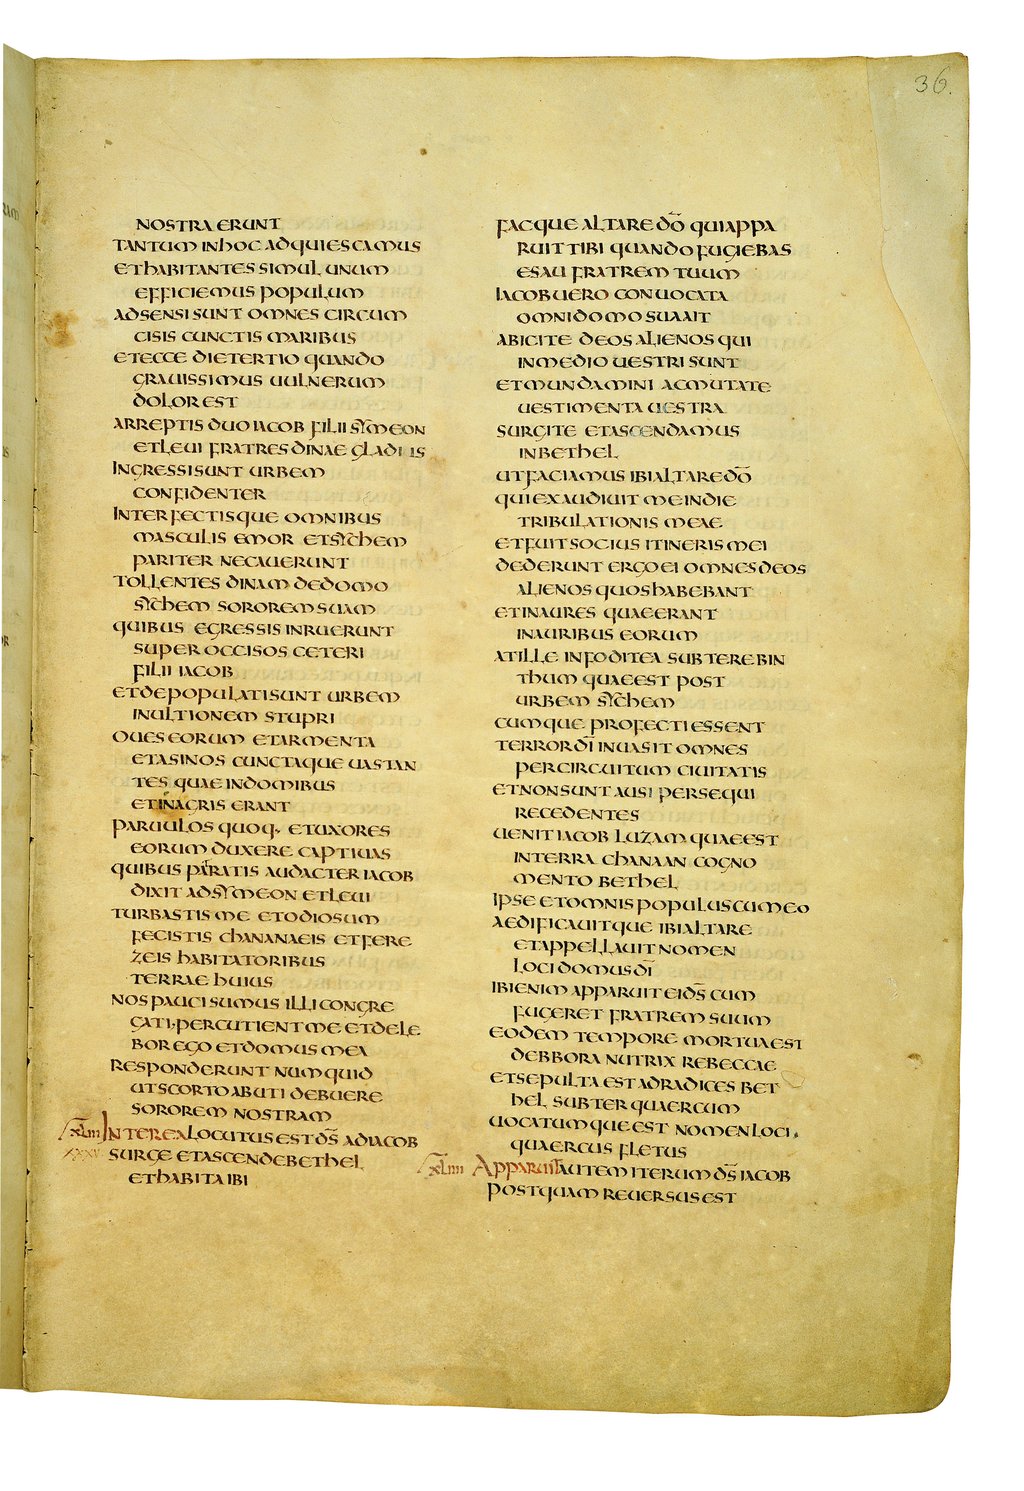 36.
NOSTRA ERUNT
TANTUM IN HOC ADQUIESCAMUS
ET HABITANTES SIMUL UNUM
EFFICIEMUS POPULUM
ADSENSI SUNT OMNES CIRCUM
CISIS CUNCTIS MARIBUS
ET ECCE DIE TERTIO QUANDO
GRAUISSIMUS UULNERUM
DOLOR EST
ARREPTIS DUO IACOB FILII SYMEON
ET LEUI FRATRES DINAE GLADIIS
INGRESSI SUNT URBEM
CONFIDENTER
INTERFECTISQUE OMNIBUS
MASCULIS EMOR ET SYCHEM
PARITER NECAUERUNT
TOLLENTES DINAM DE DOMO
SYCHEM SOROREM SUAM
QUIBUS EGRESSIS INRUERUNT
SUPER OCCISOS CETERI
FILII IACOB
ET DEPOPULATI SUNT URBEM
IN ULTIONEM STUPRI
OUES EORUM ET ARMENTA
ET ASINOS CUNCTAQUE UASTAN
TES QUAE IN DOMIBUS
ET IN AGRIS ERANT
PARUULOS QUOQ· ET UXORES
EORUM DUXERE CAPTIUAS
QUIBUS PATRATIS AUDACTER IACOB
DIXIT AD SYMEON ET LEUI
TURBASTIS ME ET ODIOSUM
FECISTIS CHANANAEIS ET FERE
ZEIS HABITATORIBUS
TERRAE HUIUS
NOS PAUCI SUMUS ILLI CONGRE
GATI· PERCUTIENT ME ET DELE
BOR EGO ET DOMUS MEA
RESPONDERUNT NUMQUID
UT SCORTO ABUTI DEBUERE
SOROREM NOSTRAM
XLIII INTEREA LOCUTUS EST D̅S̅ AD IACOB
XXXV SURGE ET ASCENDE BETHEL
ET HABITA IBI
FACQUE ALTARE D̅O̅ QUI APPA
RUIT TIBI QUANDO FUGIEBAS
ESAU FRATREM TUUM
IACOB UERO CONUOCATA
OMNI DOMO SUA AIT
ABICITE DEOS ALIENOS QUI
IN MEDIO UESTRI SUNT
ET MUNDAMINI AC MUTATE
UESTIMENTA UESTRA
SURGITE ET ASCENDAMUS
IN BETHEL
UT FACIAMUS IBI ALTARE D̅O̅
QUI EXAUDIUIT ME IN DIE
TRIBULATIONIS MEAE
ET FUIT SOCIUS ITINERIS MEI
DEDERUNT ERGO EI OMNES DEOS
ALIENOS QUOS HABEBANT
ET INAURES QUAE ERANT
IN AURIBUS EORUM
AT ILLE INFODIT EA SUBTER EBIN
THUM QUAE EST POST
URBEM SYCHEM
CUMQUE PROFECTI ESSENT
TERROR D̅I̅ INUASIT OMNES
PER CIRCUITUM CIUITATIS
ET NON SUNT AUSI PERSEQUI
RECEDENTES
UENIT IACOB LUZAM QUAE EST
IN TERRA CHANAAN COGNO
MENTO BETHEL
IPSE ET OMNIS POPULUS CUM EO
AEDIFICAUITQUE IBI ALTARE
ET APPELLAUIT NOMEN
LOCI DOMUS D̅I̅
IBI ENIM APPARUIT EI D̅S̅ CUM
FUGERET FRATREM SUUM
EODEM TEMPORE MORTUA EST
DEBBORA NUTRIX REBECCAE
ET SEPULTA EST AD RADICES BET
HEL SUBTER QUAERCUM
UOCATUMQUE EST NOMEN LOCI·
QUAERCUS FLETUS
XLIIII APPARUIT AUTEM ITERUM D̅S̅ IACOB
POSTQUAM REUERSUS EST